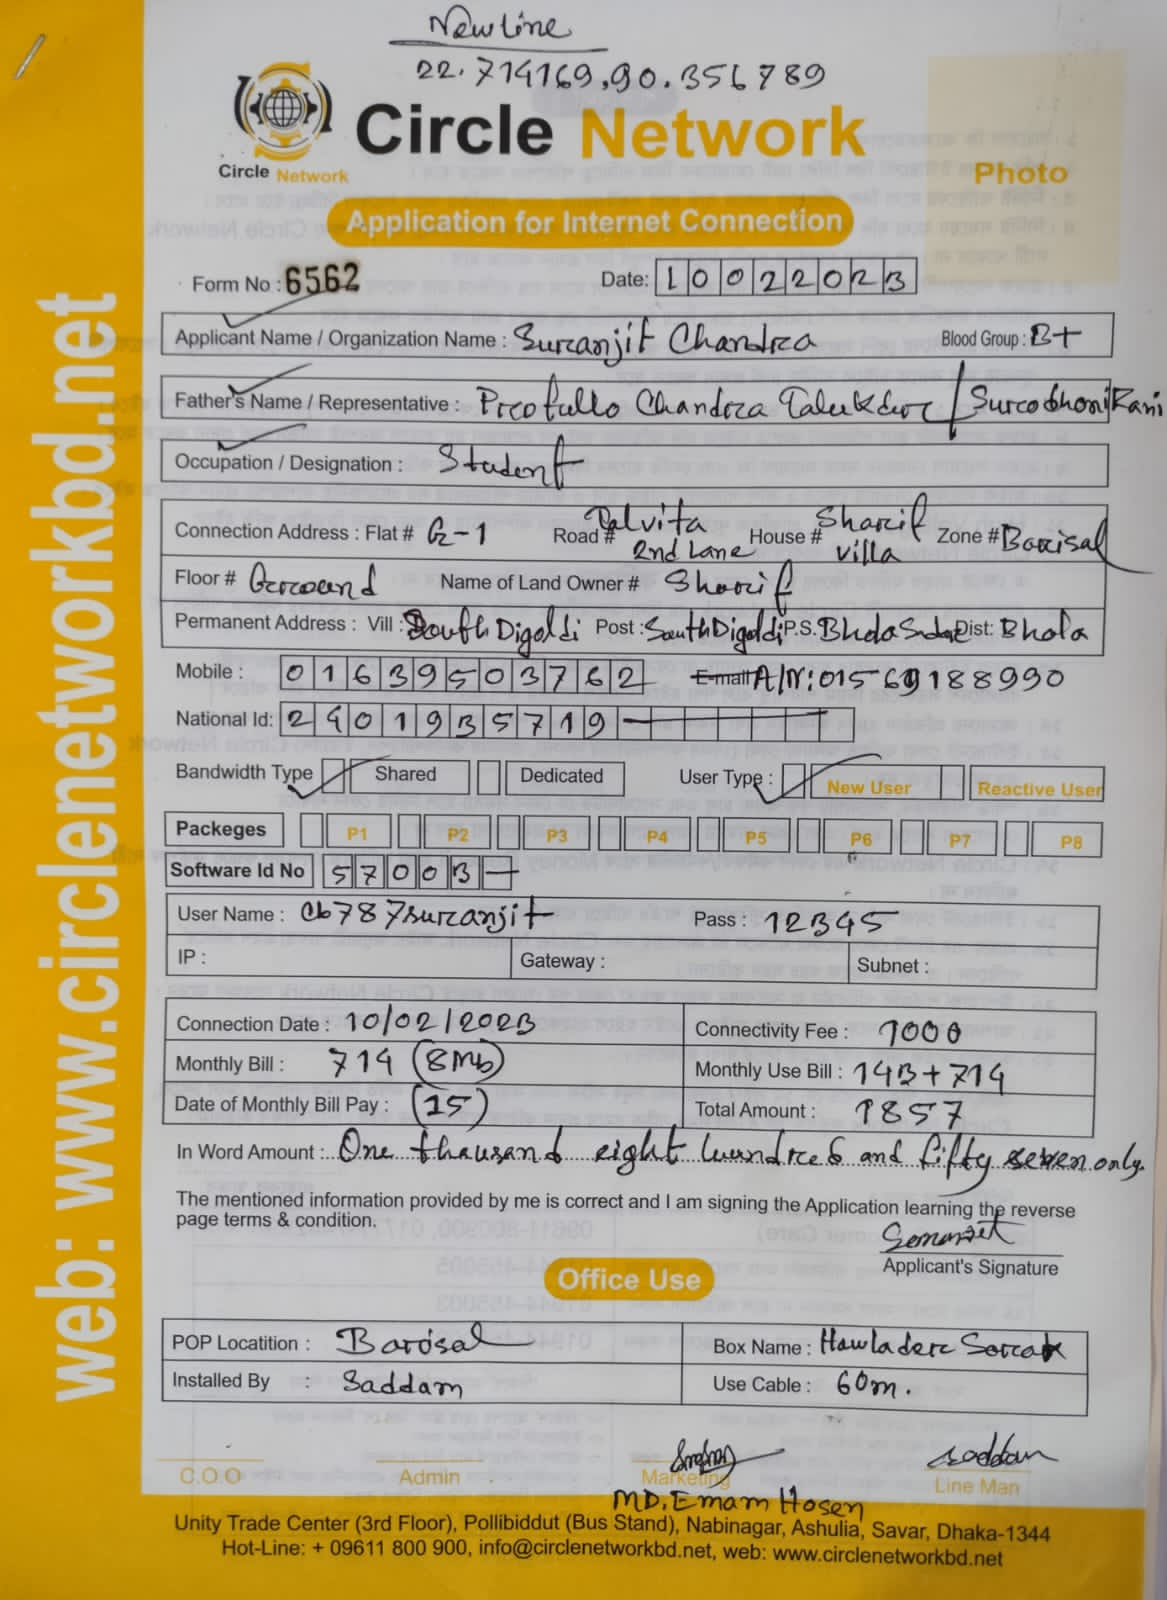 New Line
22.714169,90.356789
Circle Network
Circle Network
Photo
Application for Internet Connection
Form No : 6562 Date: 10022023
Applicant Name / Organization Name : Surcanjit Chandra Blood Group : B+
Father's Name / Representative : Profullo Chandra Talukder / Surodhoni Rani
Occupation / Designation : Student
Connection Address : Flat # G-1 Road # Talvita 2nd Lane House # Sharif villa Zone # Barisal
Floor # Ground Name of Land Owner # Sharif
Permanent Address : Vill : South Digoldi Post : South Digoldi P.S. Bhola Sadar Dist: Bhola
Mobile : 01639503762 E-mail A/N: 01569188990
National Id: 2401935719
Bandwidth Type Shared Dedicated User Type : New User Reactive User
Packeges P1 P2 P3 P4 P5 P6 P7 P8
Software Id No 57003
User Name : cb787surcanjit Pass : 12345
IP : Gateway : Subnet :
Connection Date : 10/02/2023 Connectivity Fee : 1000
Monthly Bill : 714 (8Mb) Monthly Use Bill : 143+714
Date of Monthly Bill Pay : (15) Total Amount : 1857
In Word Amount : One thousand eight hundred and fifty seven only.
The mentioned information provided by me is correct and I am signing the Application learning the reverse
page terms & condition.
Applicant's Signature
Office Use
POP Locatition : Barisal Box Name : Howlader Sorcak
Installed By : Saddam Use Cable : 60m.
saddam
C.O.O Admin Marketing Line Man
MD. Emam Hosen
Unity Trade Center (3rd Floor), Pollibiddut (Bus Stand), Nabinagar, Ashulia, Savar, Dhaka-1344
Hot-Line: + 09611 800 900, info@circlenetworkbd.net, web: www.circlenetworkbd.net
web: www.circlenetworkbd.net